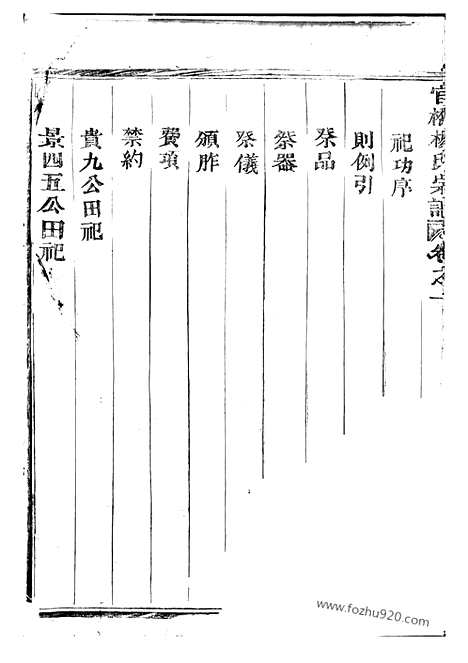 官橋楊氏宗譜卷之一
祀功序
則例引
祭品
祭器
祭儀
頒胙
費項
禁約
貴九公田祀
景四五公田祀
www.fozhu920.com